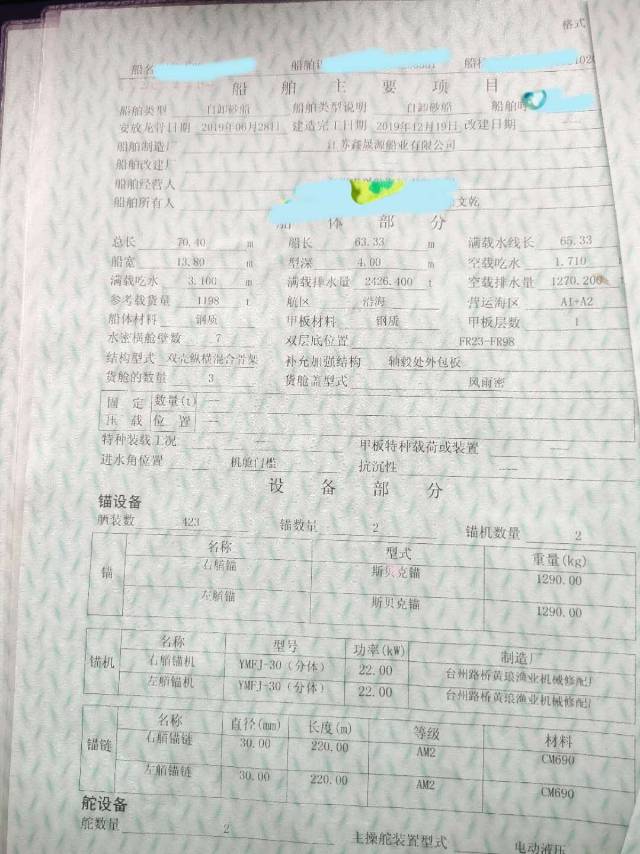 格式
船名 船舶识
船舶主要项目
船舶类型 自卸砂船 船舶类型说明 自卸砂船 船舶呼
安放龙骨日期 2019年06月28日 建造完工日期 2019年12月19日 改建日期
船舶制造厂 江苏鑫晟源船业有限公司
船舶改建厂
船舶经营人
船舶所有人 文乾
船体部分
总长 70.40 m 船长 63.33 m 满载水线长 65.33
船宽 13.80 m 型深 4.00 m 空载吃水 1.710
满载吃水 3.100 m 满载排水量 2426.400 t 空载排水量 1270.200
参考载货量 1198 t 航区 沿海 营运海区 A1+A2
船体材料 钢质 甲板材料 钢质 甲板层数 1
水密横舱壁数 7 双层底位置 FR23-FR98
结构型式 双壳纵横混合骨架 补充加强结构 轴毂处外包板
货舱的数量 3 货舱盖型式 风雨密
固定 数量(t) —
压载 位置 —
特种装载工况 — 甲板特种载荷或装置 ——
进水角位置 机舱门槛 抗沉性 ——
设备部分
锚设备
舾装数 423 锚数量 2 锚机数量 2
名称 型式 重量(kg)
锚 右艏锚 斯贝克锚 1290.00
左艏锚 斯贝克锚 1290.00
名称 型号 功率(kW) 制造厂
锚机 右艏锚机 YMFJ-30（分体） 22.00 台州路桥黄琅渔业机械修配厂
左艏锚机 YMFJ-30（分体） 22.00 台州路桥黄琅渔业机械修配厂
名称 直径(mm) 长度(m) 等级 材料
锚链 右艏锚链 30.00 220.00 AM2 CM690
左艏锚链 30.00 220.00 AM2 CM690
舵设备
舵数量 2 主操舵装置型式 电动液压